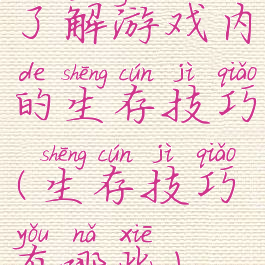 了解游戏内
de shēng cún jì qiǎo
的生存技巧
shēng cún jì qiǎo
(生存技巧
yǒu nǎ xiē
有哪些)